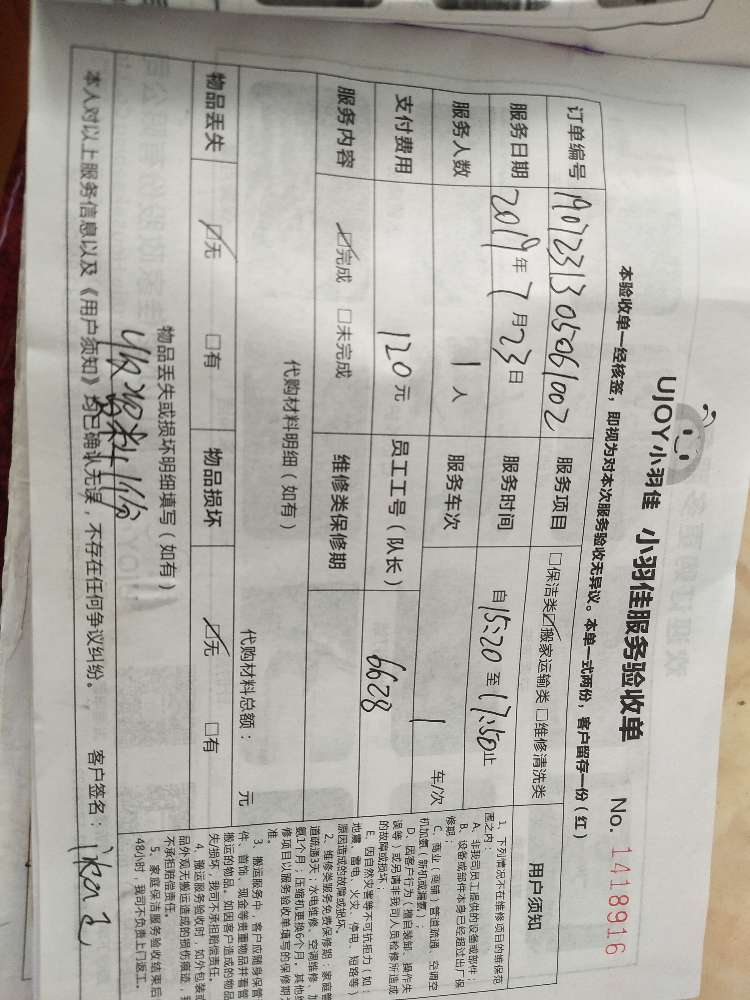 UJOY小羽佳 小羽佳服务验收单 No. 1418916
本验收单一经核签，即视为对本次服务验收无异议。本单一式两份，客户留存一份（红）
订单编号 服务项目 □保洁类☑搬家运输类□维修清洗类
服务日期 2019年7月23日 服务时间 自15:20至17:50止
服务人数 1人 服务车次 1 车/次
支付费用 120元 员工工号（队长） 6628
服务内容 ☑完成 □未完成 维修类保修期
代购材料明细（如有）
代购材料总额： 元
物品丢失 ☑无 □有 物品损坏 ☑无 □有
物品丢失或损坏明细填写（如有）
本人对以上服务信息以及《用户须知》均已确认无误，不存在任何争议纠纷。 客户签名：
用户须知
1、下列情况不在维修项目的维保范
围之内：
A、非我司员工提供的设备或部件；
B、设备或部件本身已经超过出厂保
修期；
C、商业（商铺）管道疏通、空调空
机加氨（新机或漏氨）；
D、因客户行为（擅自装卸、操作失
误等）或另请非我司人员检修所造成
的故障或损坏；
E、因自然灾害等不可抗拒力（如：
地震、雷电、火灾、停电、短路等）
原因造成的故障或损坏。
2、维修类服务免费保修期：家庭管
道疏通3天；水电维修、空调维修、加
氨1个月；压缩机更换6个月。其他维
修项目以服务验收单填写的保修期为
准。
3、搬运服务中，客户应随身保管
件、首饰、现金等贵重物品并看管
搬运的物品。如因客户造成的物品
失/损坏，我司不承担赔偿责任。
4、搬运服务验收时，如外包装或
品外观无搬运造成的损伤痕迹，我
不承担赔偿责任。
5、家庭保洁服务验收结束后
48小时，我司不负责上门返工。